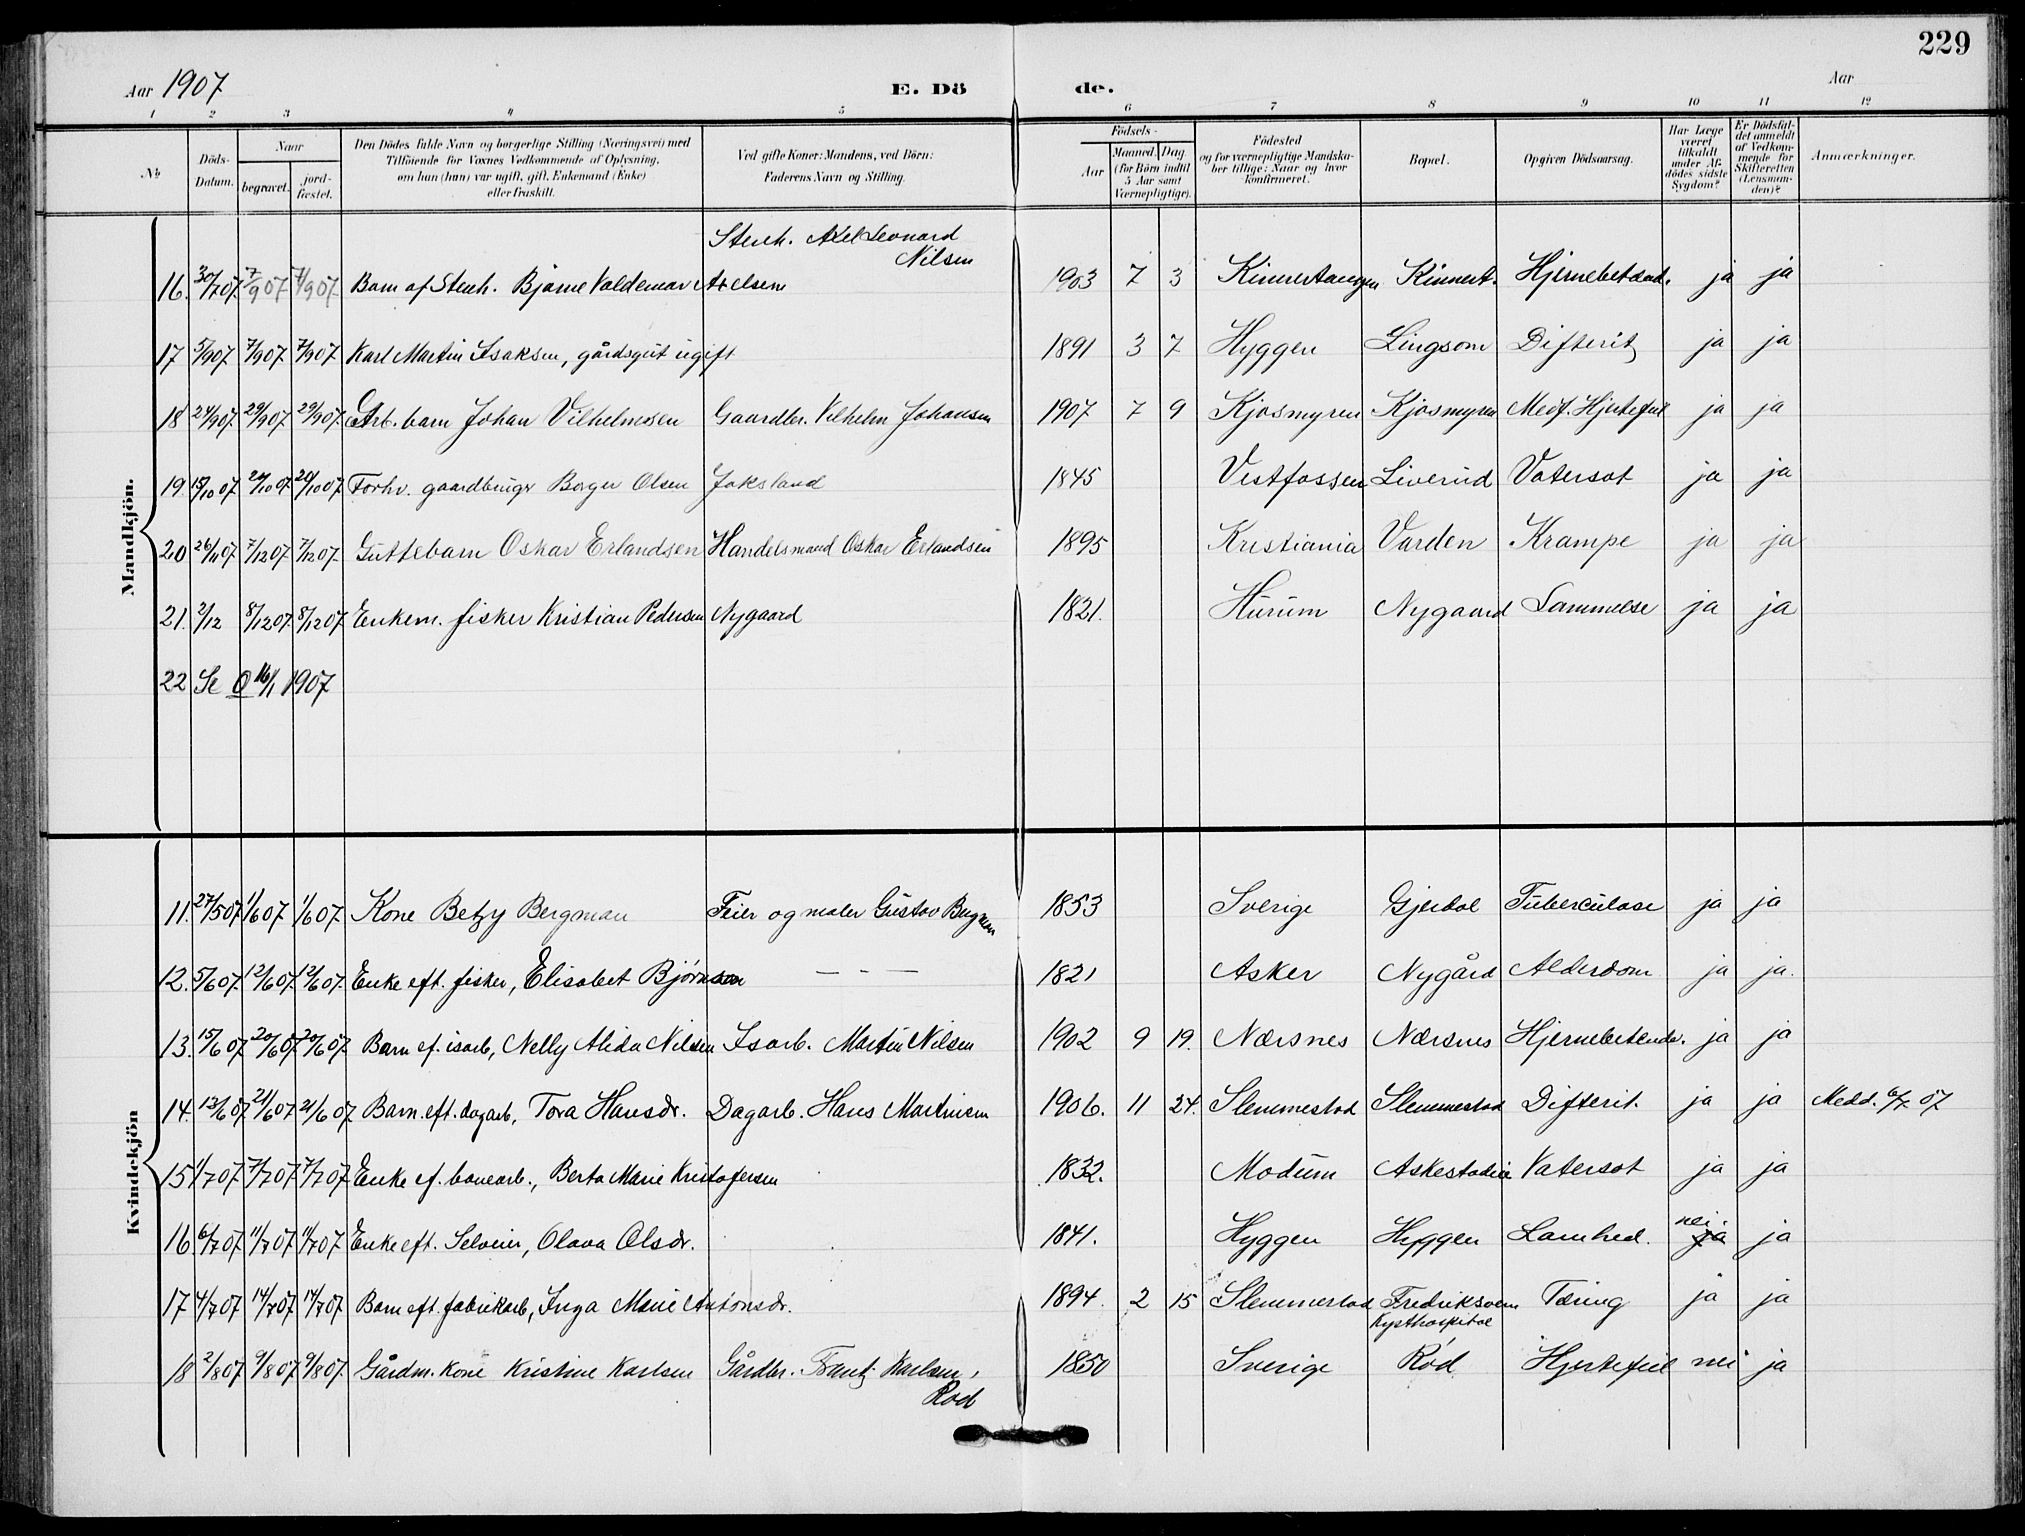 229
Aar 1907 E. Dö de. Aar
1 2 3 4 5 6 7 8 9 10 11 12
No Döds-Datum. Naar begravet. jord-fæstet. Den Dödes fulde Navn og borgerlige Stilling (Næringsvei) med Tilföiende for Voxnes Vedkommende af Oplysning, om han (hun) var ugift, gift, Enkemand (Enke) eller fraskilt. Ved gifte Koner: Mandens, ved Börn: Faderens Navn og Stilling. Födsels- Aar Maaned. Dag. (for Börn indtil 5 Aar samt Værnepligtige). Födested og for værnepligtige Mandska-ber tillige: Naar og hvor konfirmeret. Bopæl. Opgiven Dödsaarsag. Har Læge været tilkaldt under Af-dödes sidste Sygdom? Er Dödsfal-det anmeldt af Vedkom-mende for Skifteretten (Lensman-den)? Anmærkninger.
Mandkjön.
Stenh. Axel Leonard
Nilsen
16. 30/7 07. 7/9 07 7/9 07. Barn af Stenh. Bjarne Valdemar Axelsen 1903 7 3 Kinnertangen Kinnert. Hjernebetænd. ja ja
17 5/9 07 7/9 07 7/9 07 Karl Martin Isaksen, gårdsgut ugift 1891 3 7 Hyggen Lingsom Difterit ja ja
18 24/9 07. 29/9 07 29/9 07. Arb. barn Johan Vilhelmsen Gaardbr. Vilhelm Johansen 1907 7 9 Kjosmyren Kjosmyren Medf. Hjertefeil ja ja
19. 15/10 07. 20/10 07 20/10 07 Forhv. gaardbruger Borger Olsen Jaksland 1845 Vestfossen Liverud Vatersot ja ja
20 26/11 07. 7/12 07 7/12 07. Guttebarn Oskar Erlandsen Handelsmand Oskar Erlandsen 1895 Kristiania Varden Krampe ja ja
21. 2/12 8/12 07. 8/12 07 Enkem. fisker Kristian Pedersen Nygaard 1821. Hurum Nygaard Lammelse ja ja
22 Se O 16/1 1907
Kvindekjön
11. 27/5 07 1/6 07 1/6 07. Kone Betzy Bergman Feier og maler Gustav Bergman 1853 Sverige Gjerdal Tuberculose ja ja
12. 5/6 07. 12/6 07. 12/6 07. Enke eft. fisker, Elisabet Bjørnsen — - — 1821 Asker Nygård Alderdom ja ja.
13. 15/6 07. 20/6 07 20/6 07. Barn ef. isarb, Nelly Alida Nilsen Isarb. Martin Nilsen 1902 9 19. Nærsnes Nærsnes Hjernebetænde. ja ja
14. 13/6 07 21/6 07 21/6 07 Barn. eft. dagarb, Tora Hansdr. Dagarb. Hans Martinsen 1906. 11 24. Slemmestad Slemmestad Difterit. ja ja Medd. 6/7 07
15 1/7 07 7/7 07 7/7 07 Enke ef. banearb., Berta Marie Kristofersen 1832. Modum Askestadlia Vatersot ja ja
16. 6/7 07 11/7 07 11/7 07 Enke eft. Selveier, Olava Olsdr. 1841. Hyggen Hyggen Lamhed. nei. ja ja
17 4/7 07 14/7 07 14/7 07 Barn eft. fabrikarb, Inga Marie Antonsdr. 1894. 2 15 Slemmestad Fredriksvern Tæring ja ja
Kysthospital
18 2/8 07 9/8 07 9/8 07. Gårdm. Kone Kristine Karlsen Gårdbr. Frantz Karlsen, 1850 Sverige Rød Hjertefeil nei ja
Rød